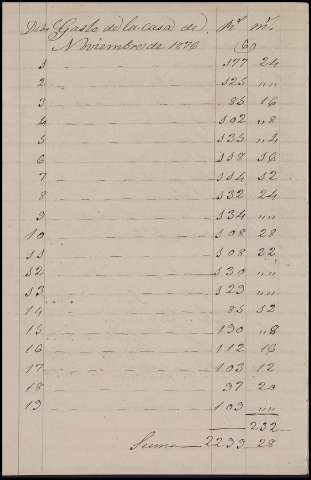 Dias Gasto de la casa de R.s m.s
Noviembre de 1876 (6)
1 177 24
2 125 " "
3 85 16
4 102 "8
5 135 "4
6 118 16
7 114 12
8 132 24
9 134 " "
10 108 28
11 108 32
12 130 " "
13 129 " "
14 85 12
15 130 "8
16 112 16
17 103 12
18 97 20
19 103 " "
232
Suma 2233 28